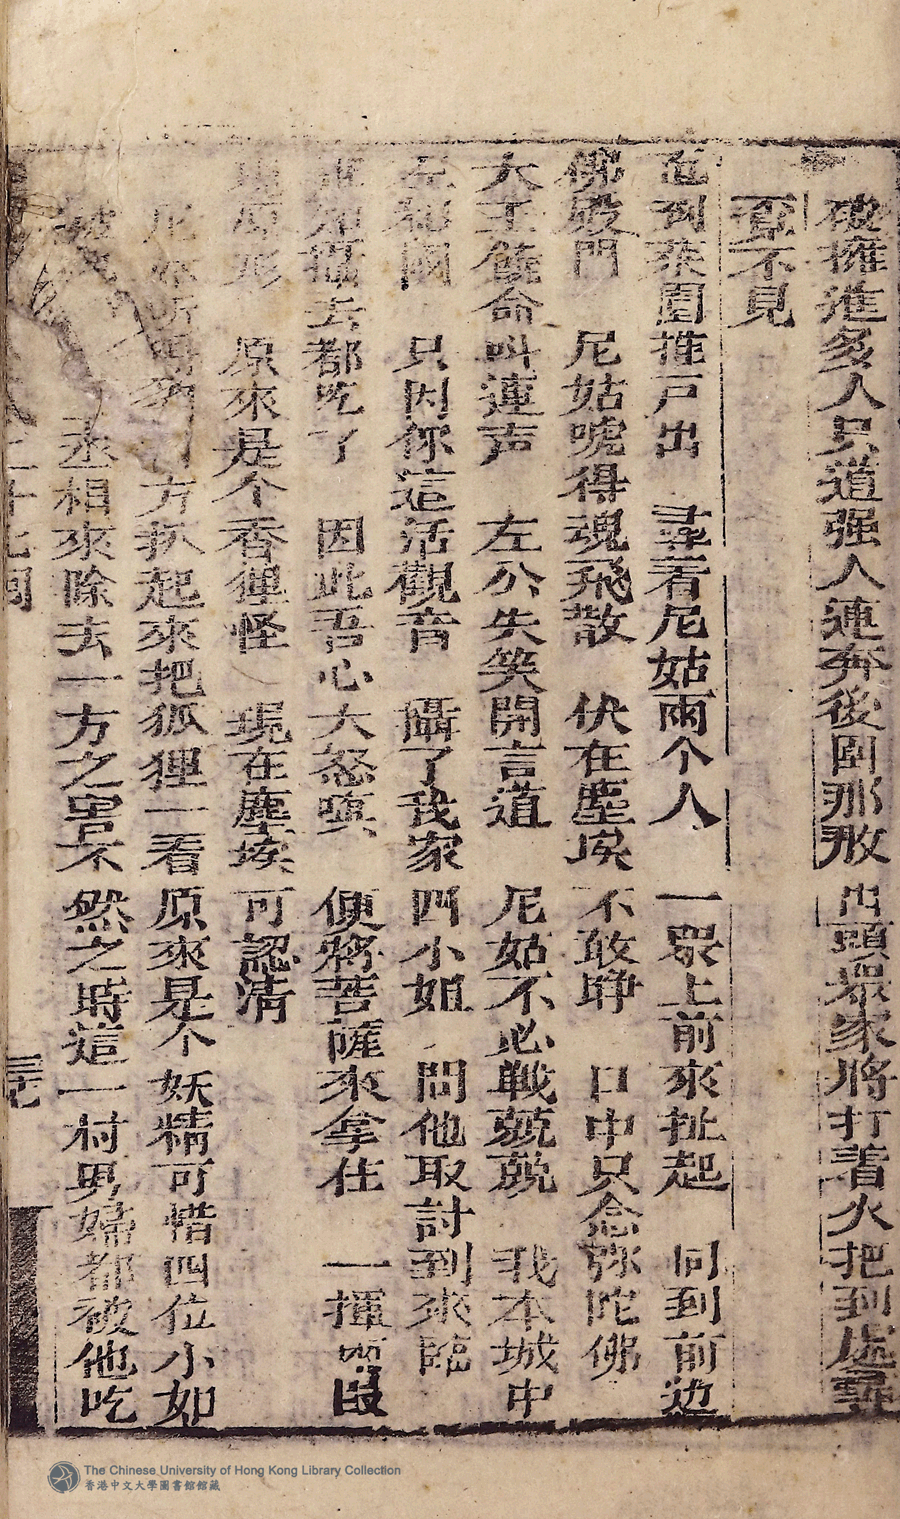 破擁進多人只道强人連奔後園那敢出頭衆家將打着火把到處尋
覓不見
追到菜園推戸出　尋看尼姑兩个人　一眾上前來扯起　同到前边
佛殿門　尼姑唬得魂飛散　伏在塵埃不敢睁　口中只念弥陀佛
大王饒命叫連声　左公失笑開言道　尼姑不必戰兢兢　我本城中
左都閫　只因你這活觀音　攝了我家四小姐　問他取討到來臨
知攝去都吃了　因此吾心大怒嗔　便將菩薩來拿住　一揮兩段
現原形　原來是个香狸怪　現在塵埃可認清
尼姑聽説方扒起來把狐狸一看原來是个妖精可惜四位小如
丞相來除去一方之害不然之時這一村男婦都被他吃
The Chinese University of Hong Kong Library Collection
香港中文大學圖書館館藏